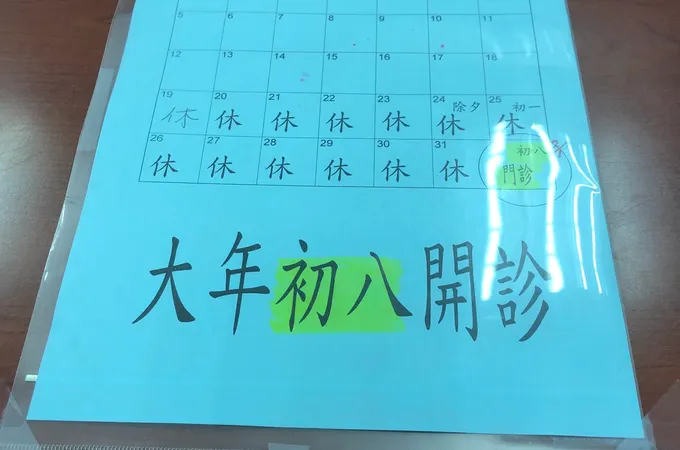 5 6 7 8 9 10 11
12 13 14 15 16 17 18
19 20 21 22 23 24 除夕 25 初一
休 休 休 休 休 休 休
26 27 28 29 30 31 初八
休 休 休 休 休 休 門診
大年初八開診